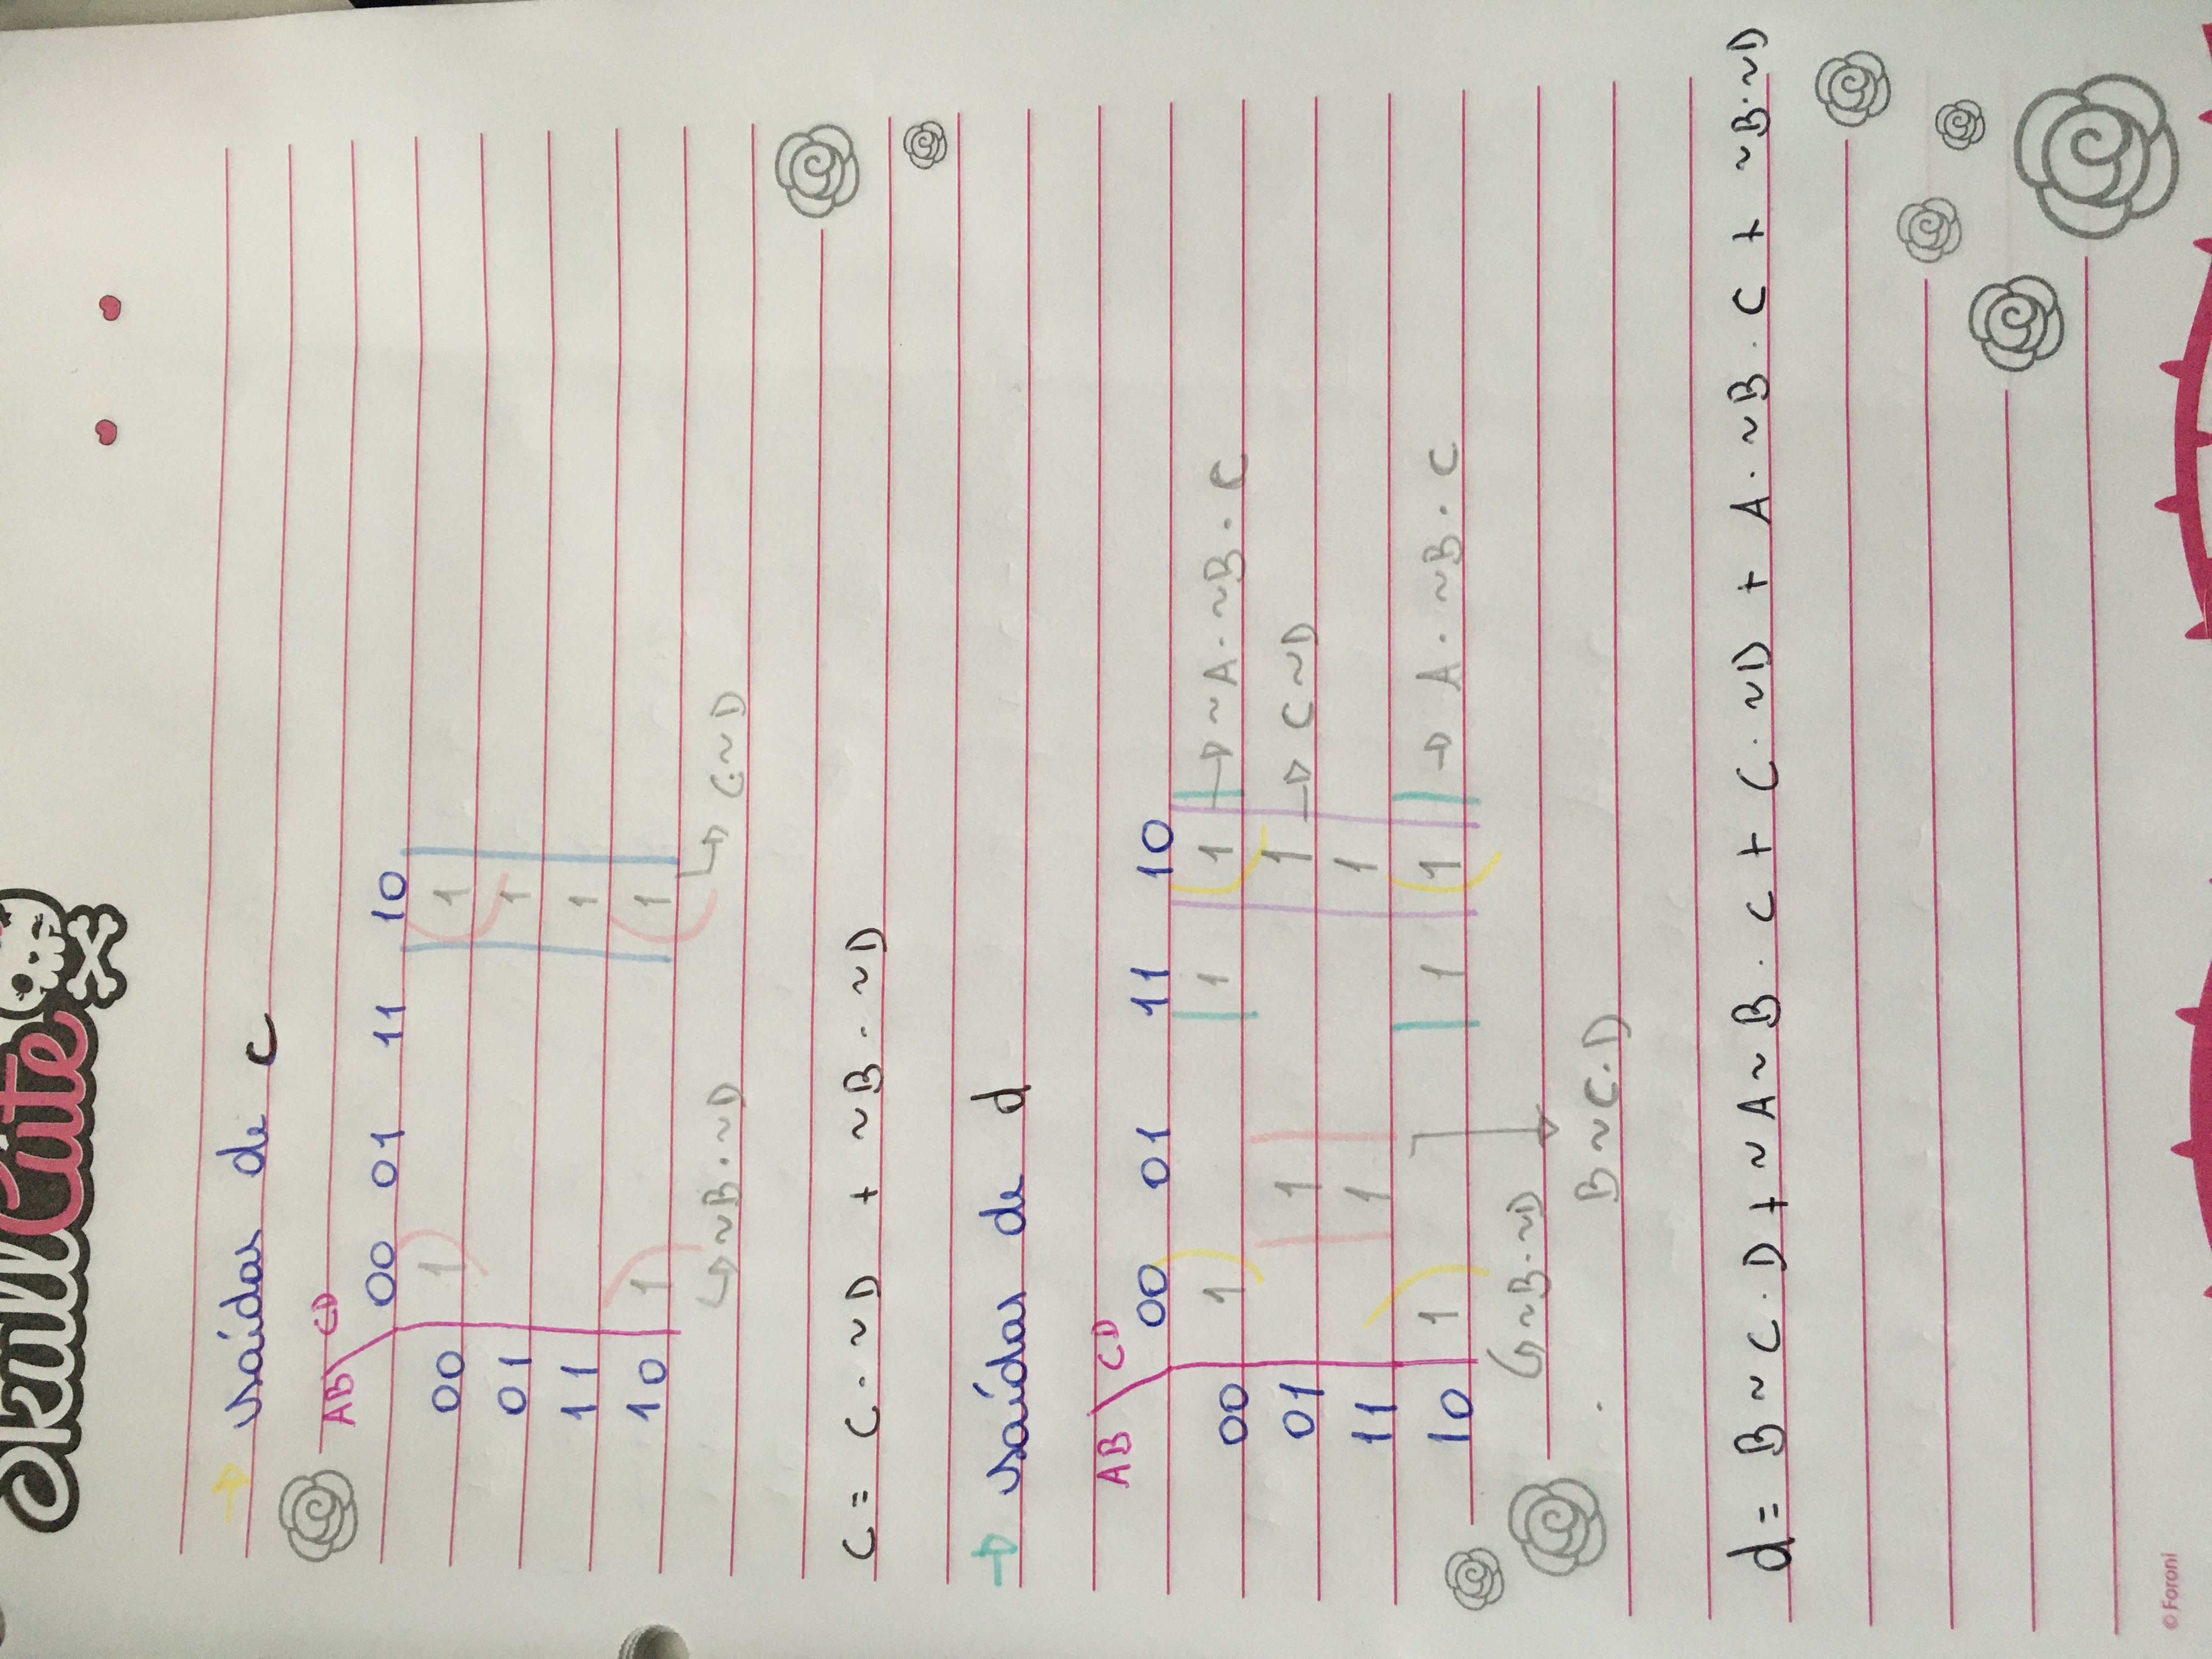 SkullCute
→ saídas de c
AB \ CD
00 01 11 10
00 1 1
01 1
11 1
10 1 1
↳ ~B·~D ↳ C·~D
C = C·~D + ~B·~D
→ saídas de d
AB \ CD
00 01 11 10
00 1 1 1 → ~A·~B·C
01 1 1 → C~D
11 1 1
10 1 1 1 → A·~B·C
↳ ~B·~D
B~C·D
d = B~C·D + ~A~B·C + C·~D + A·~B·C + ~B·~D
© Foroni